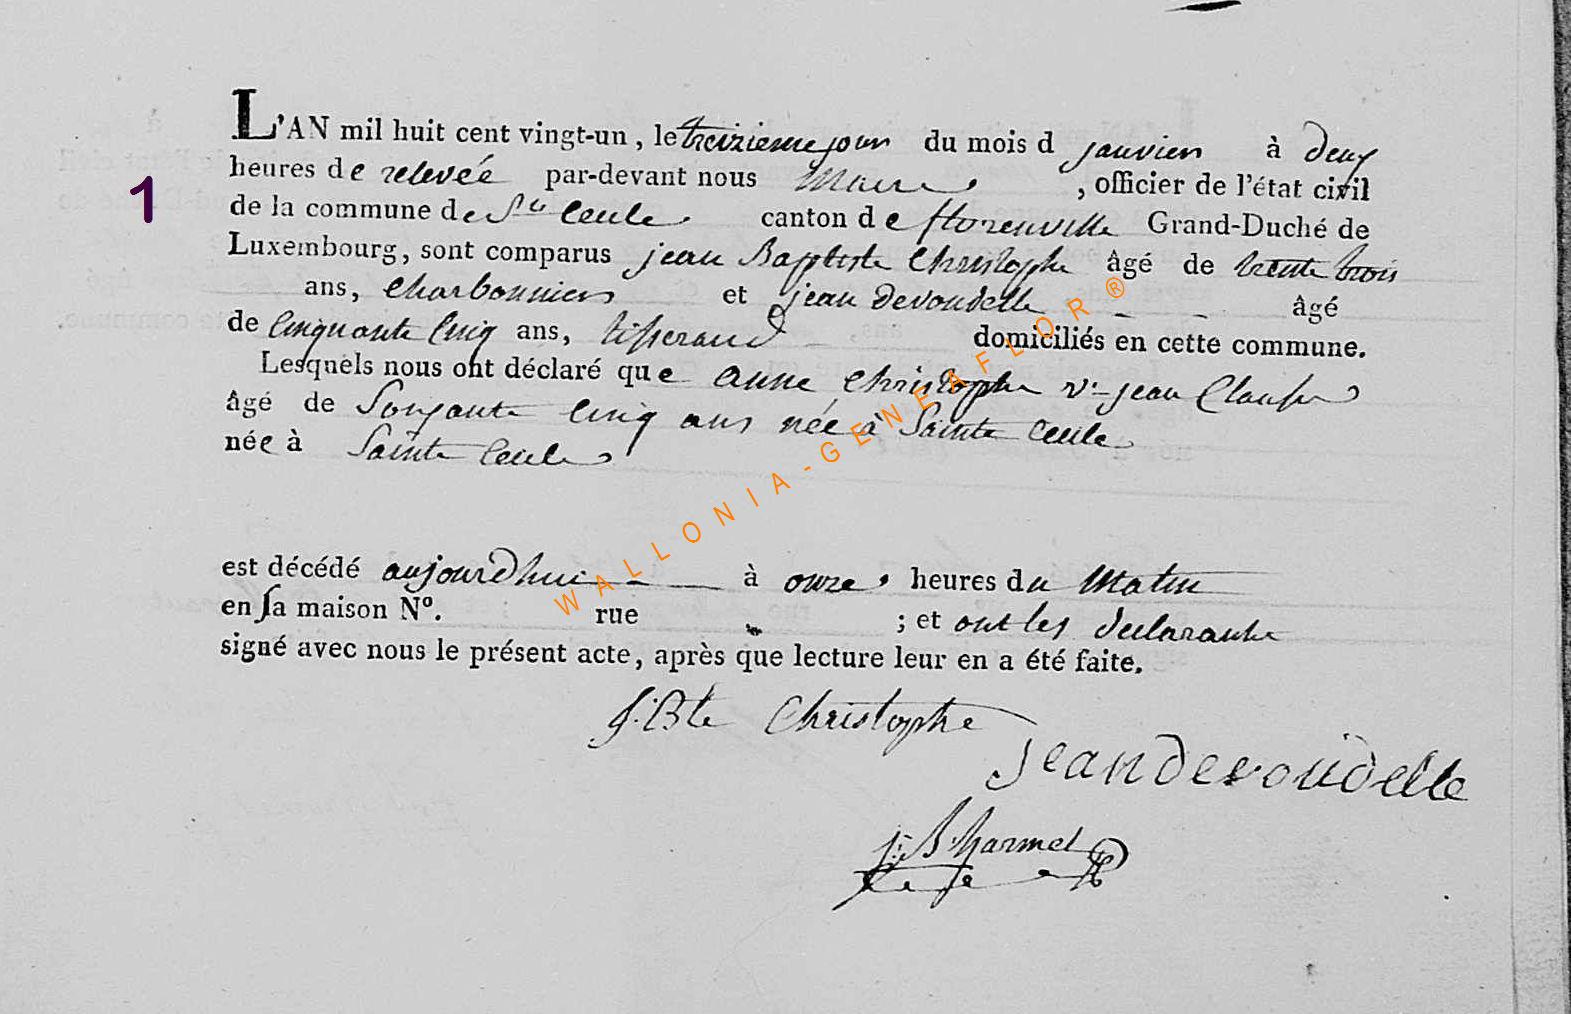 1
L'AN mil huit cent vingt-un, le treizieme jour du mois d janvier à deux
heures de relevée par-devant nous Maire, officier de l'état civil
de la commune de Ste Cecile canton de florenville Grand-Duché de
Luxembourg, sont comparus jean Baptiste Christophe âgé de trente trois
ans, charbonnier et jean devoudelle âgé
de cinquante cinq ans, tisserand domiciliés en cette commune.
Lesquels nous ont déclaré que anne christophe ve jean
âgé de soixante cinq ans née à Sainte Cecile
née à Sainte Cecile
est décédé aujourdhui à onze heures du matin
en sa maison N°. rue ; et ont les declarants
signé avec nous le présent acte, après que lecture leur en a été faite.
J. Bte Christophe
jean devoudelle
j: B harmel
WALLONIA-GENEAFLOR®